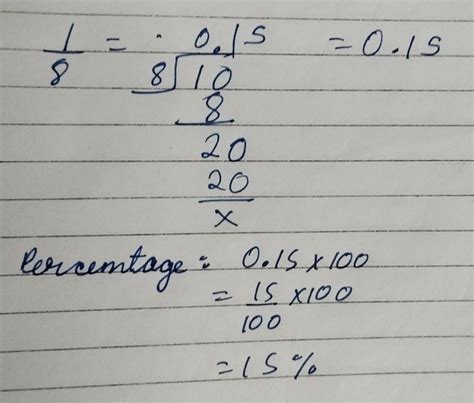 1/8 = · 0.15 = 0.15
8)10
8
20
20
x
Percemtage: 0.15 x 100
= 15/100 x 100
= 15%